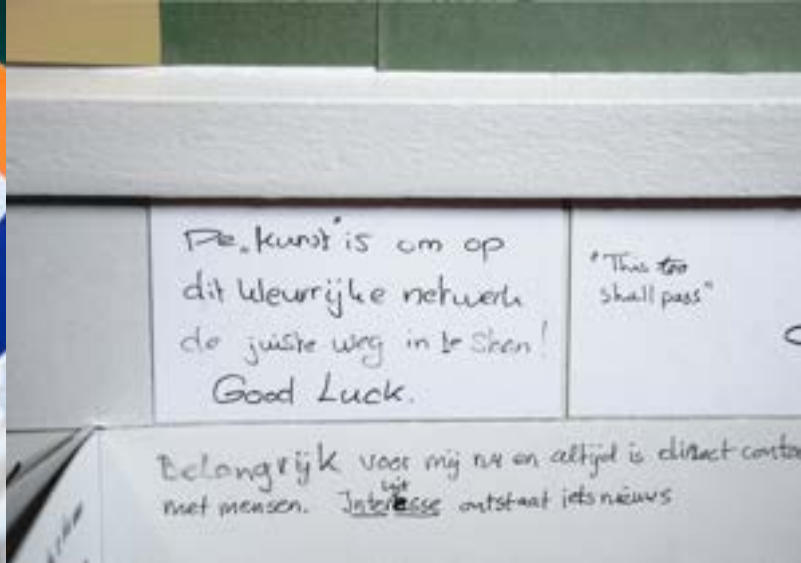 De „kunst" is om op
dit kleurrijke netwerk
de juiste weg in te slaan!
Good Luck.
"This too
shall pass"
Belangrijk voor mij nu en altijd is direct conta
met mensen. Uit Interesse ontstaat iets nieuws